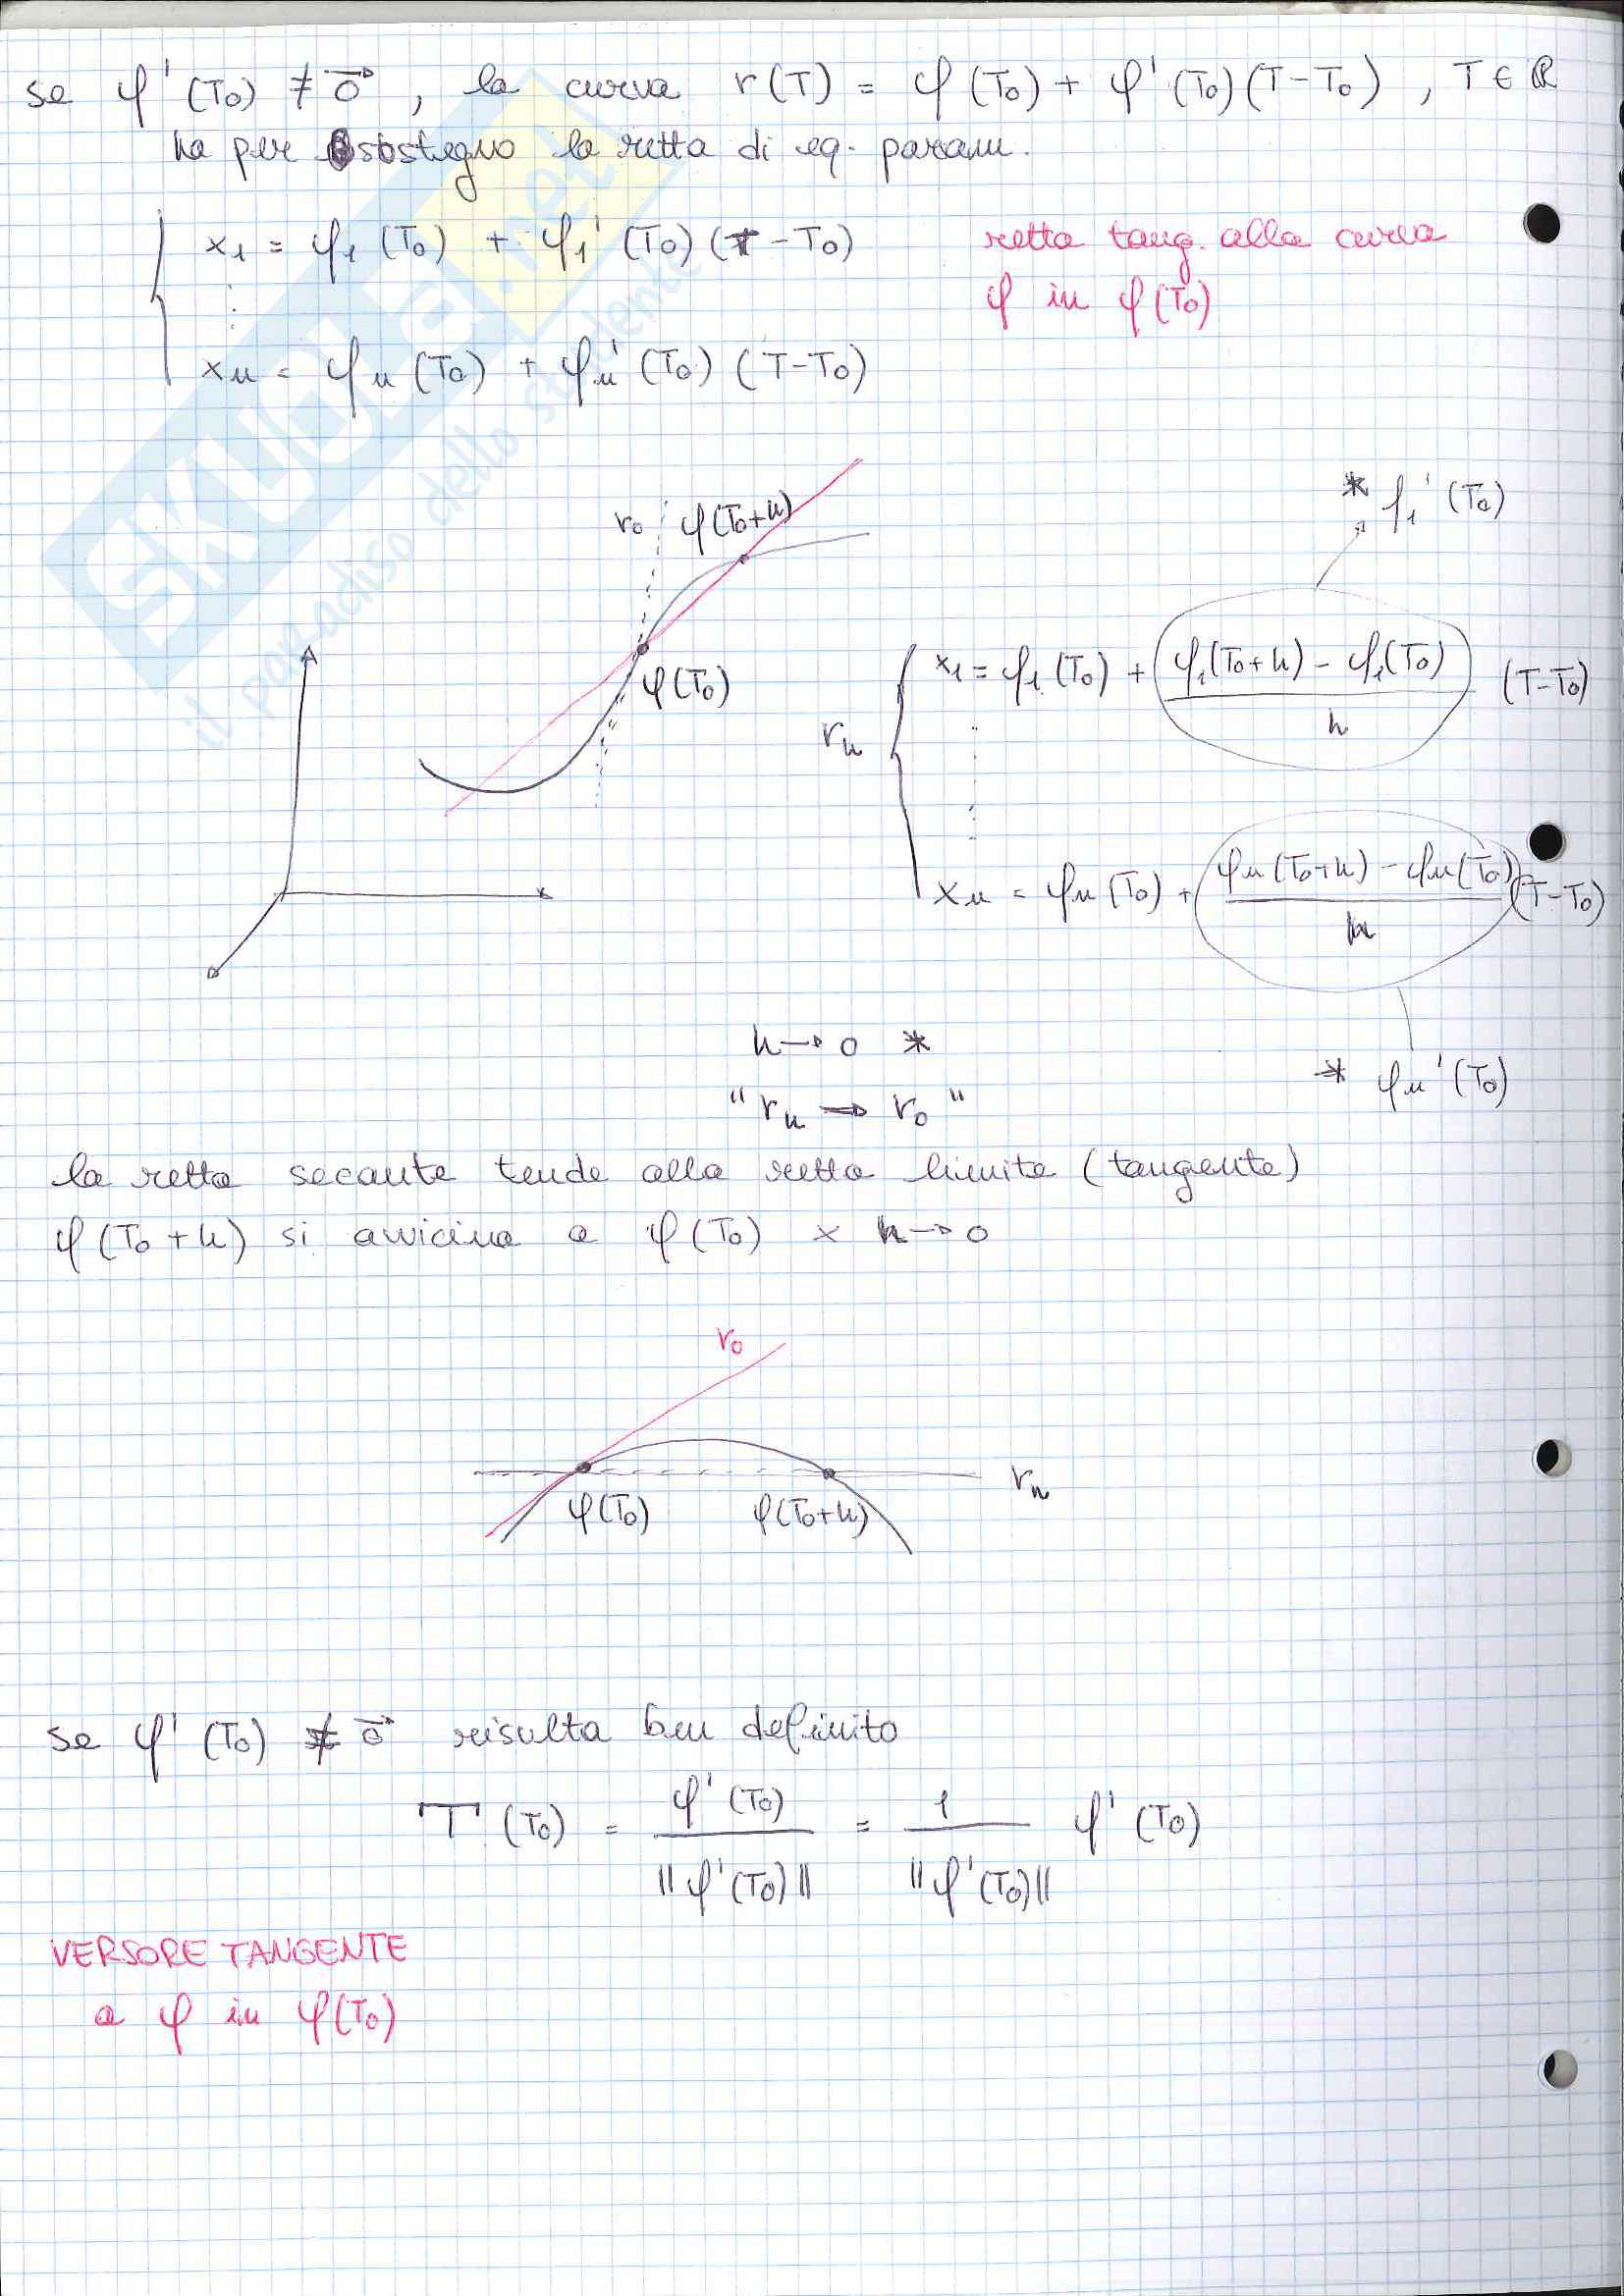 se φ'(T₀) ≠ 0⃗, la curva r(T) = φ(T₀) + φ'(T₀)(T-T₀), T ∈ ℝ
ha per sostegno la retta di eq. param.
x₁ = φ₁(T₀) + φ₁'(T₀)(T-T₀)
retta tang. alla curva
φ in φ(T₀)
⋮
xₙ = φₙ(T₀) + φₙ'(T₀)(T-T₀)
SKUOLA.net
il paradiso dello studente
* φ₁'(T₀)
r₀ φ(T₀+h)
φ(T₀)
rₕ
x₁ = φ₁(T₀) + (φ₁(T₀+h) - φ₁(T₀))/h (T-T₀)
⋮
xₙ = φₙ(T₀) + (φₙ(T₀+h) - φₙ(T₀))/h (T-T₀)
h → 0 *
* φₙ'(T₀)
"rₕ → r₀"
la retta secante tende alla retta limite (tangente)
φ(T₀+h) si avvicina a φ(T₀) x h → 0
r₀
rₕ
φ(T₀) φ(T₀+h)
se φ'(T₀) ≠ 0⃗ risulta ben definito
T(T₀) = φ'(T₀)/||φ'(T₀)|| = 1/||φ'(T₀)|| φ'(T₀)
VERSORE TANGENTE
a φ in φ(T₀)